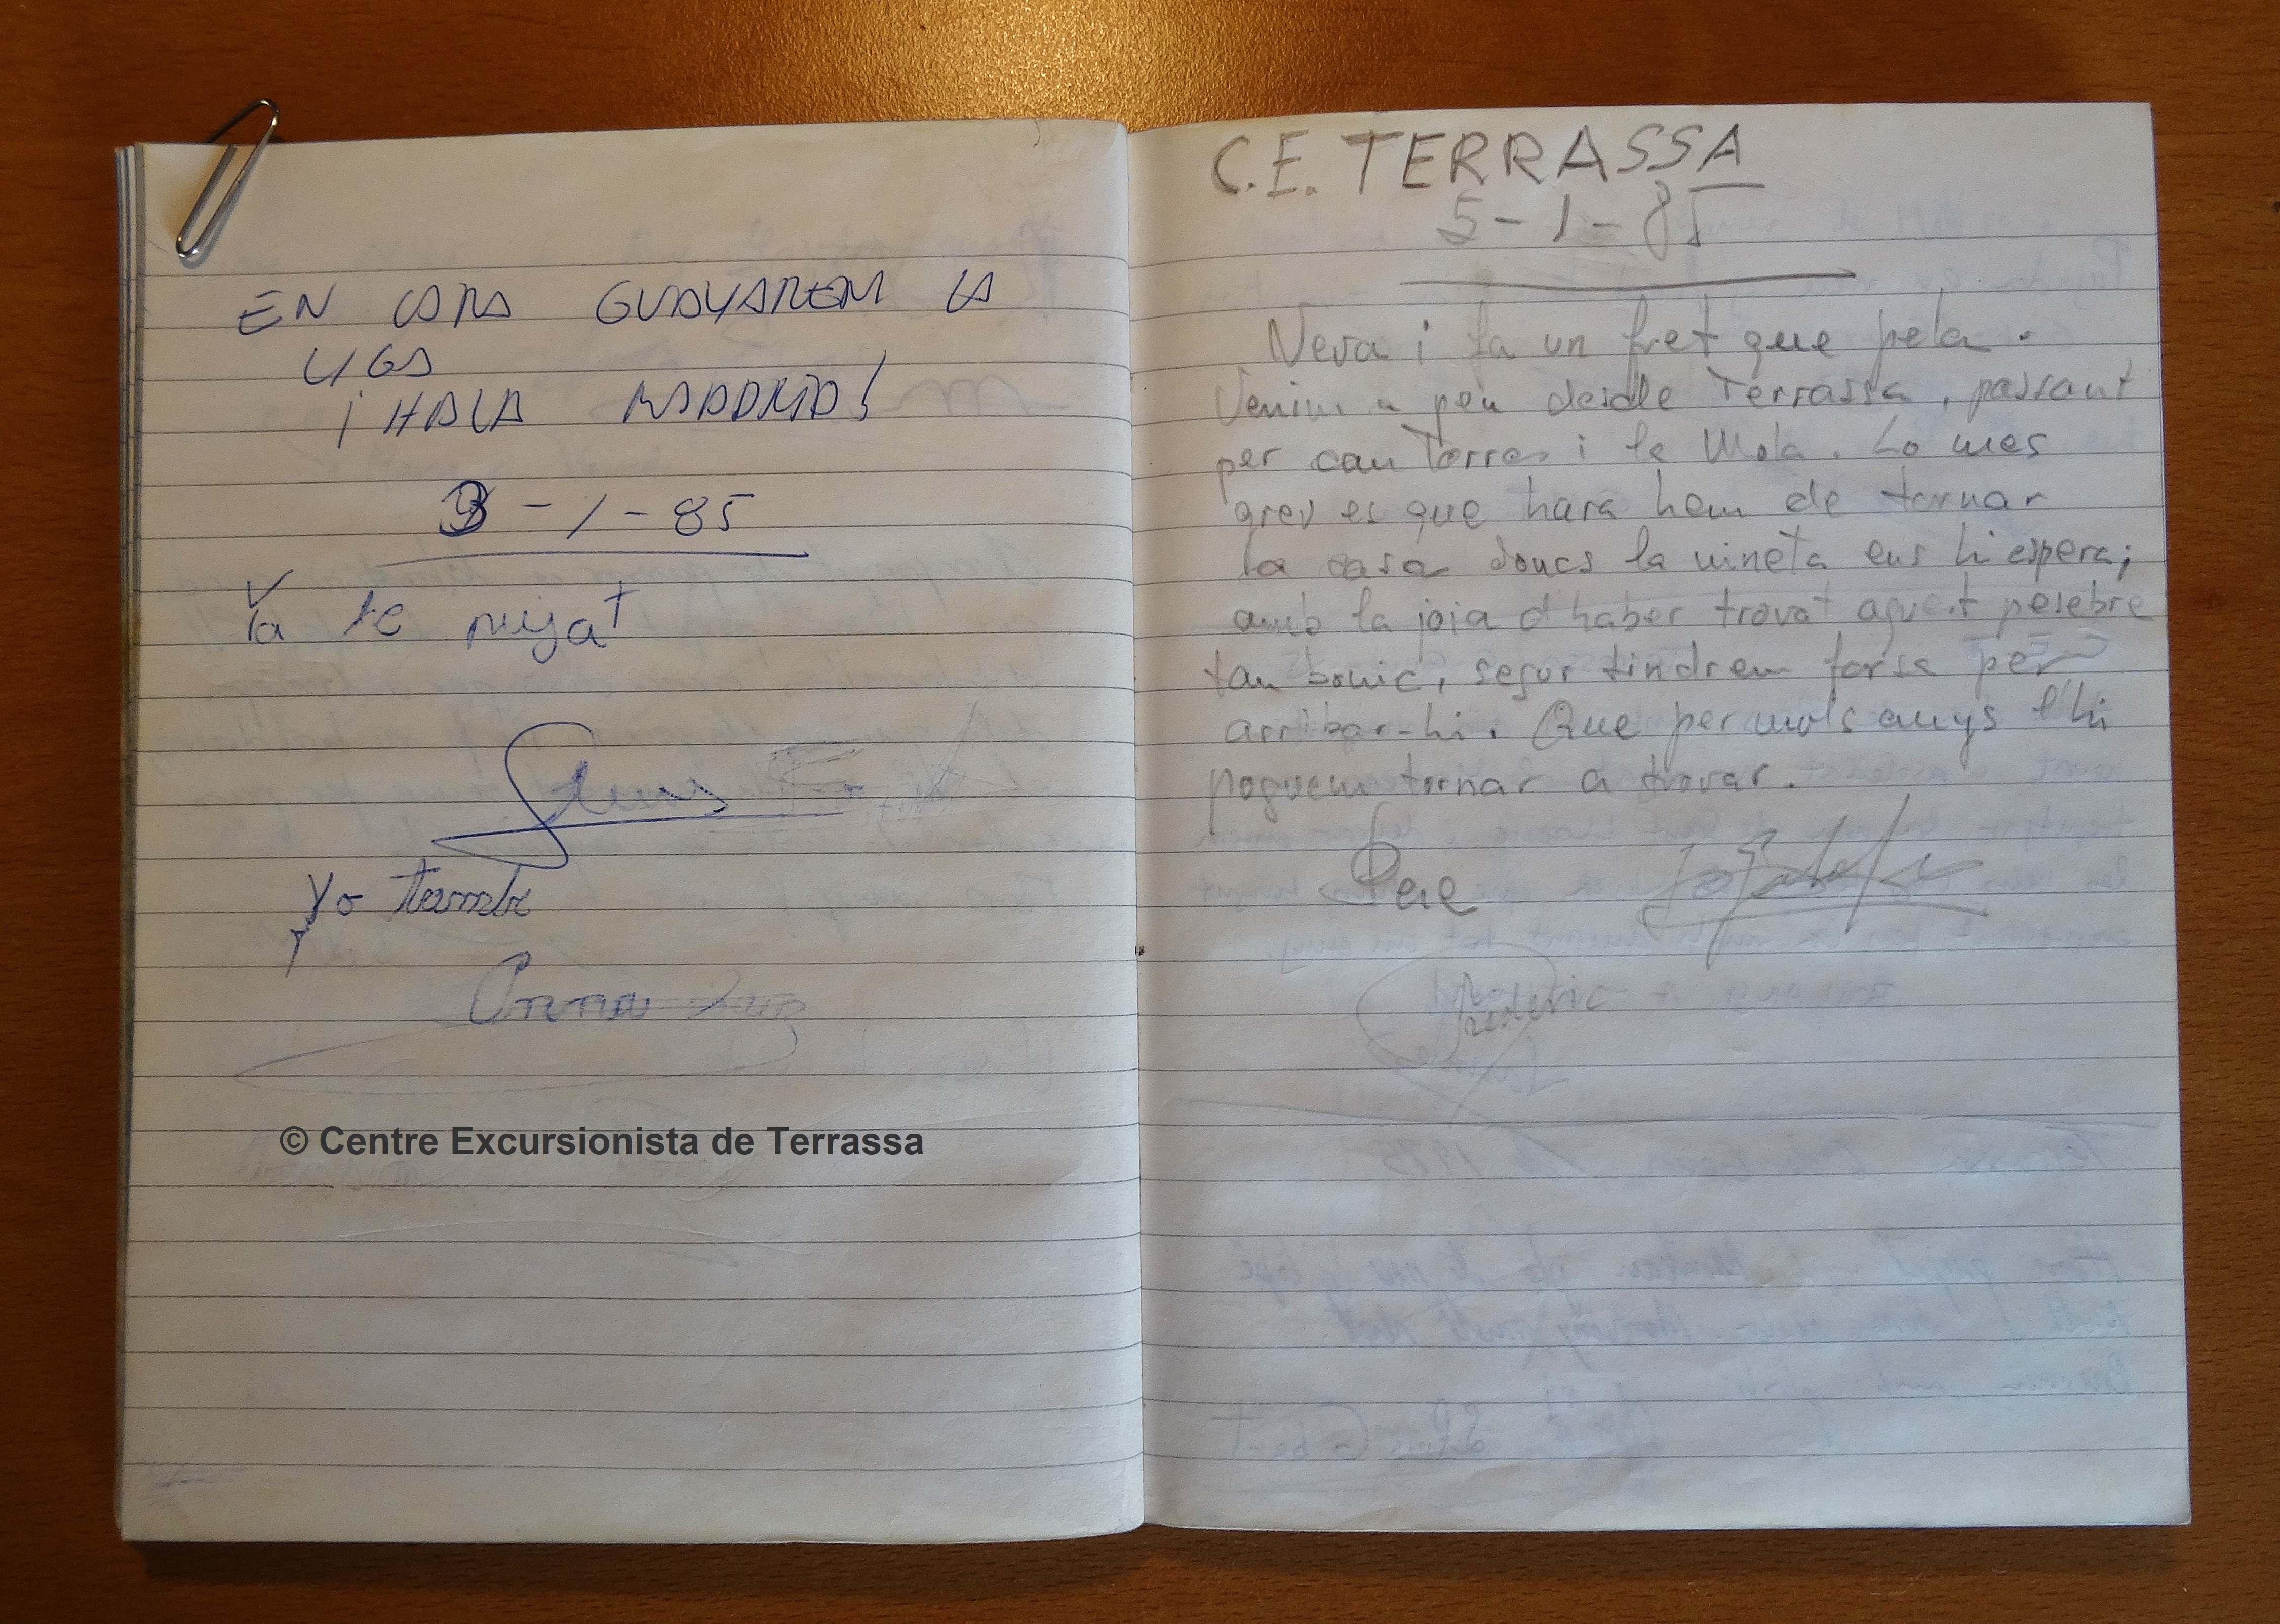 EN CARA GUAYAREM LA
LIGA
¡HALA MADRID!
3-1-85
Ya te
yo tambe
Anna
© Centre Excursionista de Terrassa
C.E. TERRASSA
5-1-85
Neva i fa un fret que pela.
Venim a peu desde Terrassa, passant
per can Torres i la Mola. Lo mes
greu es que hara hem de tornar
a casa doncs la nineta ens hi espera;
amb la joia d'haber trovat aquest pesebre
tan bonic, segur tindrem forsa per
arribar-hi. Que per mols anys l'hi
poguem tornar a trovar.
Pere
Frederic